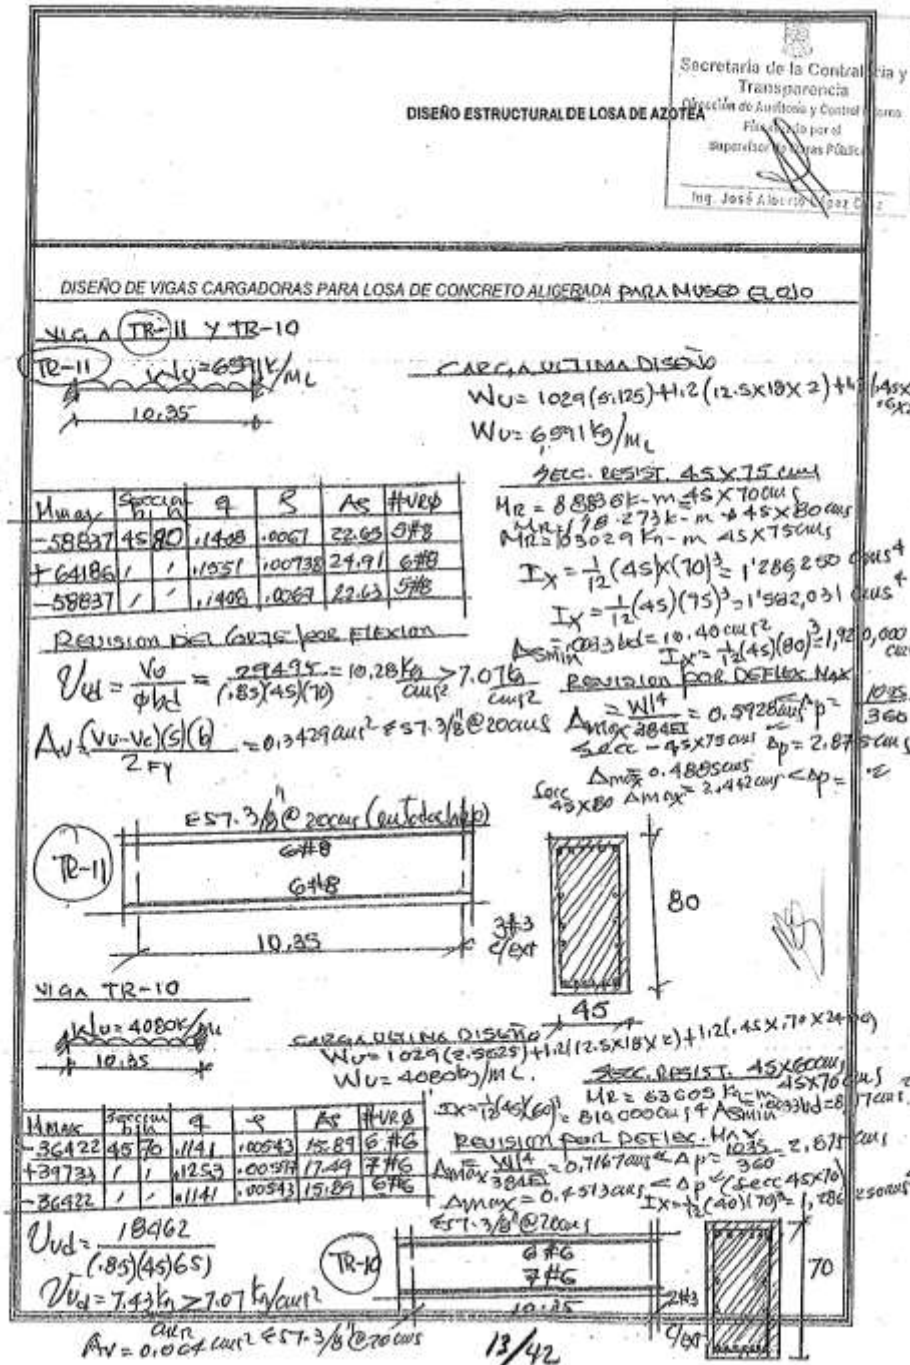 Secretaría de la Contraloría y
Transparencia
Dirección de Auditoría y Control Interno
Fiscalizado por el
Supervisor de Obras Públicas
Ing. José Alberto López
DISEÑO ESTRUCTURAL DE LOSA DE AZOTEA
DISEÑO DE VIGAS CARGADORAS PARA LOSA DE CONCRETO ALIGERADA PARA MUSEO EL OJO
VIGA TR-11 Y TR-10
TR-11
Wu=6591K/ML
10.35
CARGA ULTIMA DISEÑO
WU= 1029(5.125)+1.2(12.5X18X2)+1.2(.45X
WU= 6,591 kg/ML
SECC. RESIST. 45X75 cms
MR = 88836K-m 45X70cms
45X80cms
MR=103029 Kg-m 45X75cms
Mmax Seccion b h q ρ As #VRΦ
-58837 45 80 .1408 .0067 22.63 5#8
+64186 / / .1551 .00738 24.91 6#8
-58837 / / .1408 .0067 22.63 5#8
Ix = 1/12 (45)(70)³ = 1'286,250 cms⁴
Ix = 1/12 (45)(75)³ = 1'582,031 cms⁴
Asmin = .0033bd = 10.40cms² Ix = 1/12 (45)(80)³ = 1,920,000
REVISION DEL CORTE POR FLEXION
Uud = Vu/Φbd = 29495/(.85)(45)(70) = 10.28 kg/cms² > 7.07 kg/cms²
Av = (Vu-Vc)(S)(b)/2FY = 0.3429 cms² EST. 3/8" @ 20cms
REVISION POR DEFLEX. MAX
Δmax = Wl⁴/384EI = 0.5928cms Δp = 1035/360
Secc - 45X75cms Δp = 2.875cms
Δmax = 0.4885cms
Secc 45X80 Δmax = 2.442cms < Δp =
EST. 3/8" @ 20cms (en todo
TR-11
6#8
6#8
10.35
3#3
c/ext
80
45
VIGA TR-10
Wu= 4080K/ML
10.35
CARGA ULTIMA DISEÑO
WU= 1029(2.5625)+1.2(12.5X18X2)+1.2(.45X.70X2400)
WU= 4080kg/ML.
SECC. RESIST. 45X60cms
MR = 63605 Kg-m 45X70cms
Ix = 1/12 (45)(60)³ = 810,000cms⁴ Asmin = .0033bd = 8.17cms
Mmax Seccion b h q ρ As #VRΦ
-36422 45 70 .1141 .00543 15.89 6#6
+39733 / / .1253 .00597 17.49 7#6
-36422 / / .1141 .00543 15.89 6#6
REVISION POR DEFLEX. MAX
Δmax = Wl⁴/384EI = 0.7167cms < Δp = 1035/360 = 2.875 cms
Δmax = 0.4513cms < Δp (secc 45x70)
Ix = 1/12 (40)(70)³ = 1,286,250cms⁴
Uud = 18462/(.85)(45)(65)
Uud = 7.43 kg/cms² > 7.07 kg/cms²
Av = 0.064 cms² EST. 3/8" @ 20cms
TR-10
EST. 3/8" @ 20cms
6#6
7#6
10.35
2#3
c/ext
70
13/42